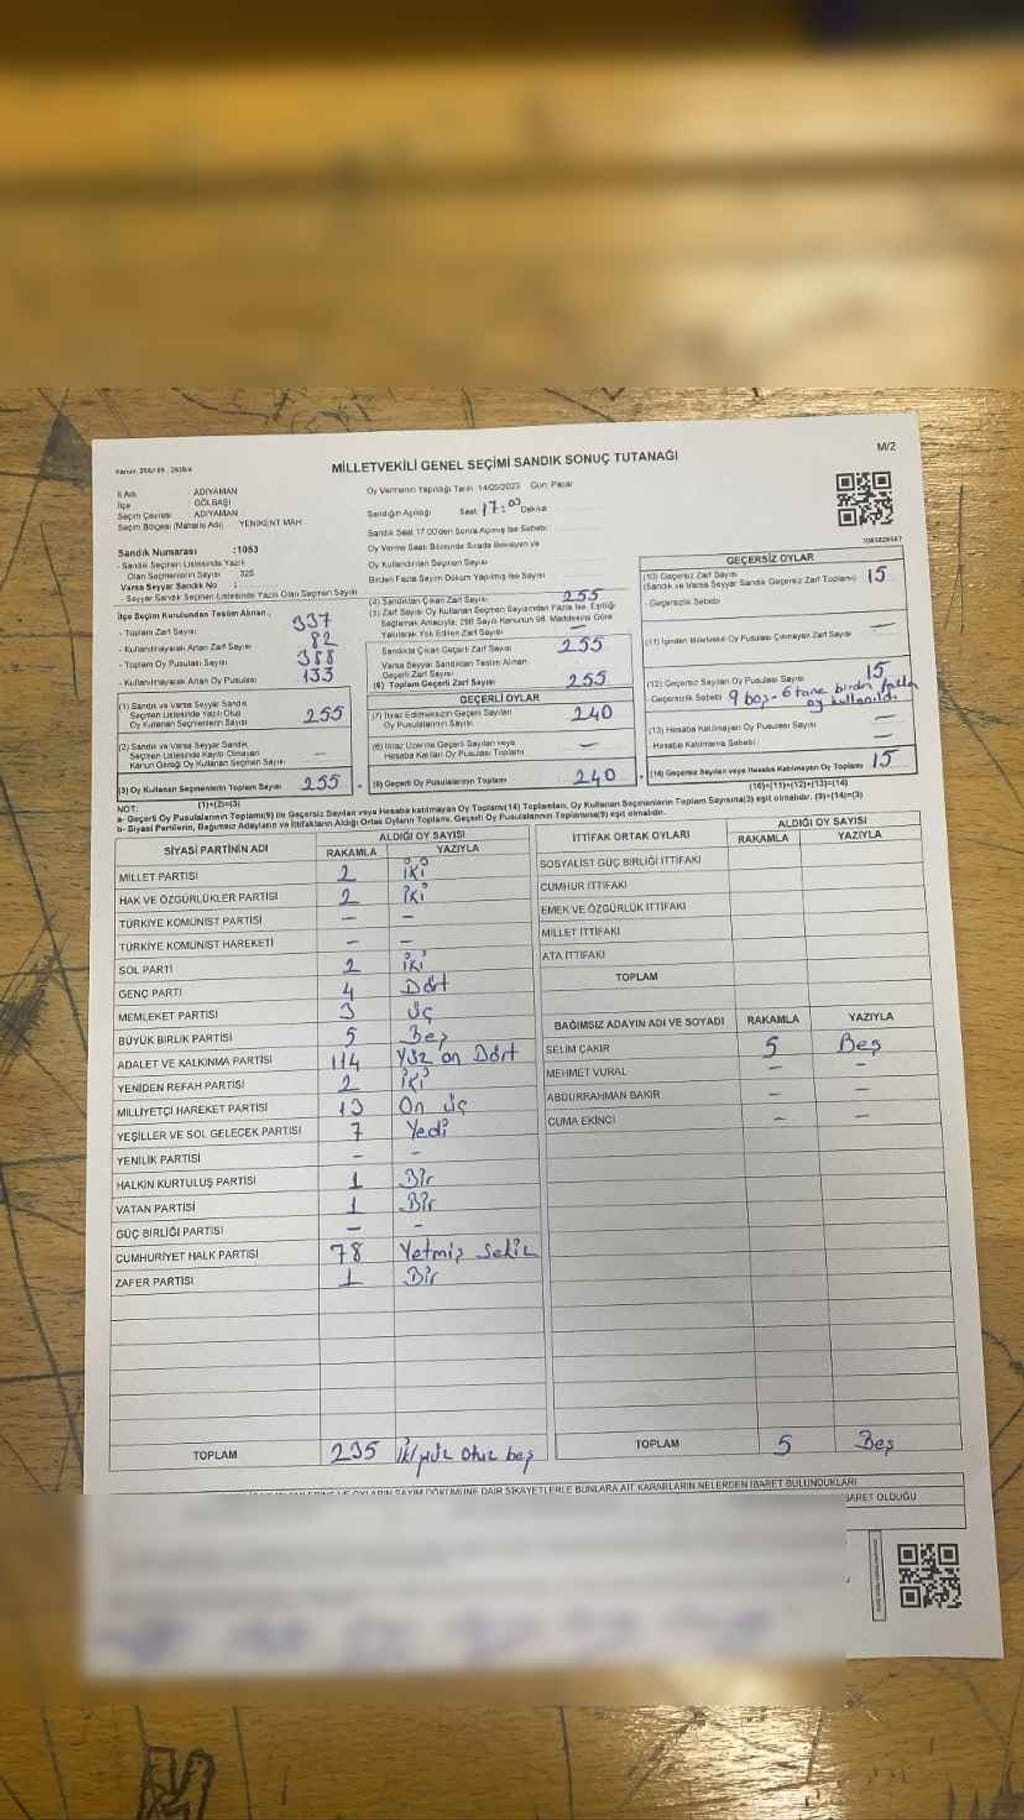 M/2
MİLLETVEKİLİ GENEL SEÇİMİ SANDIK SONUÇ TUTANAĞI
İl Adı ADIYAMAN
İlçe GÖLBAŞI
Seçim Çevresi ADIYAMAN
Seçim Bölgesi (Mahalle Adı) YENİKENT MAH.
Oy Vermenin Yapıldığı Tarih 14/05/2023 Gün: Pazar
Sandığın Açıldığı Saat 17:00 Dakika
Sandık Saat 17.00'den Sonra Açılmış İse Sebebi
Oy Verme Saati Bitiminde Sırada Bekleyen ve
Oy Kullandırılan Seçmen Sayısı
Birden Fazla Sayım Döküm Yapılmış İse Sayısı
Sandık Numarası :1053
- Sandık Seçmen Listesinde Yazılı
Olan Seçmenlerin Sayısı : 325
Varsa Seyyar Sandık No :
- Seyyar Sandık Seçmen Listesinde Yazılı Olan Seçmen Sayısı
İlçe Seçim Kurulundan Teslim Alınan;
- Toplam Zarf Sayısı 337
- Kullanılmayarak Artan Zarf Sayısı 82
- Toplam Oy Pusulası Sayısı 388
- Kullanılmayarak Artan Oy Pusulası 133
(1) Sandık ve Varsa Seyyar Sandık
Seçmen Listesinde Yazılı Olup
Oy Kullanan Seçmenlerin Sayısı 255
(2) Sandık ve Varsa Seyyar Sandık
Seçmen Listesinde Kayıtlı Olmayan
Kanun Gereği Oy Kullanan Seçmen Sayısı —
(3) Oy Kullanan Seçmenlerin Toplam Sayısı 255
(1)+(2)=(3)
(4) Sandıktan Çıkan Zarf Sayısı 255
(5) Zarf Sayısı Oy Kullanan Seçmen Sayısından Fazla İse, Eşitliği
Sağlamak Amacıyla; 298 Sayılı Kanunun 98. Maddesine Göre
Yakılarak Yok Edilen Zarf Sayısı —
Sandıkta Çıkan Geçerli Zarf Sayısı 255
Varsa Seyyar Sandıktan Teslim Alınan
Geçerli Zarf Sayısı
(6) Toplam Geçerli Zarf Sayısı 255
GEÇERLİ OYLAR
(7) İtiraz Edilmeksizin Geçerli Sayılan
Oy Pusulalarının Sayısı 240
(8) İtiraz Üzerine Geçerli Sayılan veya
Hesaba Katılan Oy Pusulası Toplamı —
(9) Geçerli Oy Pusulalarının Toplamı 240
GEÇERSİZ OYLAR
(10) Geçersiz Zarf Sayısı
(Sandık ve Varsa Seyyar Sandık Geçersiz Zarf Toplamı) 15
- Geçersizlik Sebebi
(11) İçinden Milletvekili Oy Pusulası Çıkmayan Zarf Sayısı —
(12) Geçersiz Sayılan Oy Pusulası Sayısı 15
Geçersizlik Sebebi 9 boş - 6 tane birden fazla
oy kullanıldı.
(13) Hesaba Katılmayan Oy Pusulası Sayısı —
Hesaba Katılmama Sebebi —
(14) Geçersiz Sayılan veya Hesaba Katılmayan Oy Toplamı 15
(10)+(11)+(12)+(13)=(14)
NOT:
a- Geçerli Oy Pusulalarının Toplamı(9) ile Geçersiz Sayılan veya Hesaba katılmayan Oy Toplamı(14) Toplamları, Oy Kullanan Seçmenlerin Toplam Sayısına(3) eşit olmalıdır. (9)+(14)=(3)
b- Siyasi Partilerin, Bağımsız Adayların ve İttifakların Aldığı Ortak Oyların Toplamı, Geçerli Oy Pusulalarının Toplamına(9) eşit olmalıdır.
SİYASİ PARTİNİN ADI ALDIĞI OY SAYISI
RAKAMLA YAZIYLA
MİLLET PARTİSİ 2 iki
HAK VE ÖZGÜRLÜKLER PARTİSİ 2 iki
TÜRKİYE KOMÜNİST PARTİSİ — —
TÜRKİYE KOMÜNİST HAREKETİ — —
SOL PARTİ 2 iki
GENÇ PARTİ 4 Dört
MEMLEKET PARTİSİ 3 üç
BÜYÜK BİRLİK PARTİSİ 5 Beş
ADALET VE KALKINMA PARTİSİ 114 Yüz on Dört
YENİDEN REFAH PARTİSİ 2 iki
MİLLİYETÇİ HAREKET PARTİSİ 13 On üç
YEŞİLLER VE SOL GELECEK PARTİSİ 7 Yedi
YENİLİK PARTİSİ — —
HALKIN KURTULUŞ PARTİSİ 1 Bir
VATAN PARTİSİ 1 Bir
GÜÇ BİRLİĞİ PARTİSİ — —
CUMHURİYET HALK PARTİSİ 78 Yetmiş Sekiz
ZAFER PARTİSİ 1 Bir
TOPLAM 235 ikiyüz otuz beş
İTTİFAK ORTAK OYLARI ALDIĞI OY SAYISI
RAKAMLA YAZIYLA
SOSYALİST GÜÇ BİRLİĞİ İTTİFAKI
CUMHUR İTTİFAKI
EMEK VE ÖZGÜRLÜK İTTİFAKI
MİLLET İTTİFAKI
ATA İTTİFAKI
TOPLAM
BAĞIMSIZ ADAYIN ADI VE SOYADI RAKAMLA YAZIYLA
SELİM ÇAKIR 5 Beş
MEHMET VURAL — —
ABDURRAHMAN BAKIR — —
CUMA EKİNCİ — —
TOPLAM 5 Beş
OYLARIN SAYIM DÖKÜMÜNE DAİR ŞİKAYETLERLE BUNLARA AİT KARARLARIN NELERDEN İBARET BULUNDUKLARI
İBARET OLDUĞU